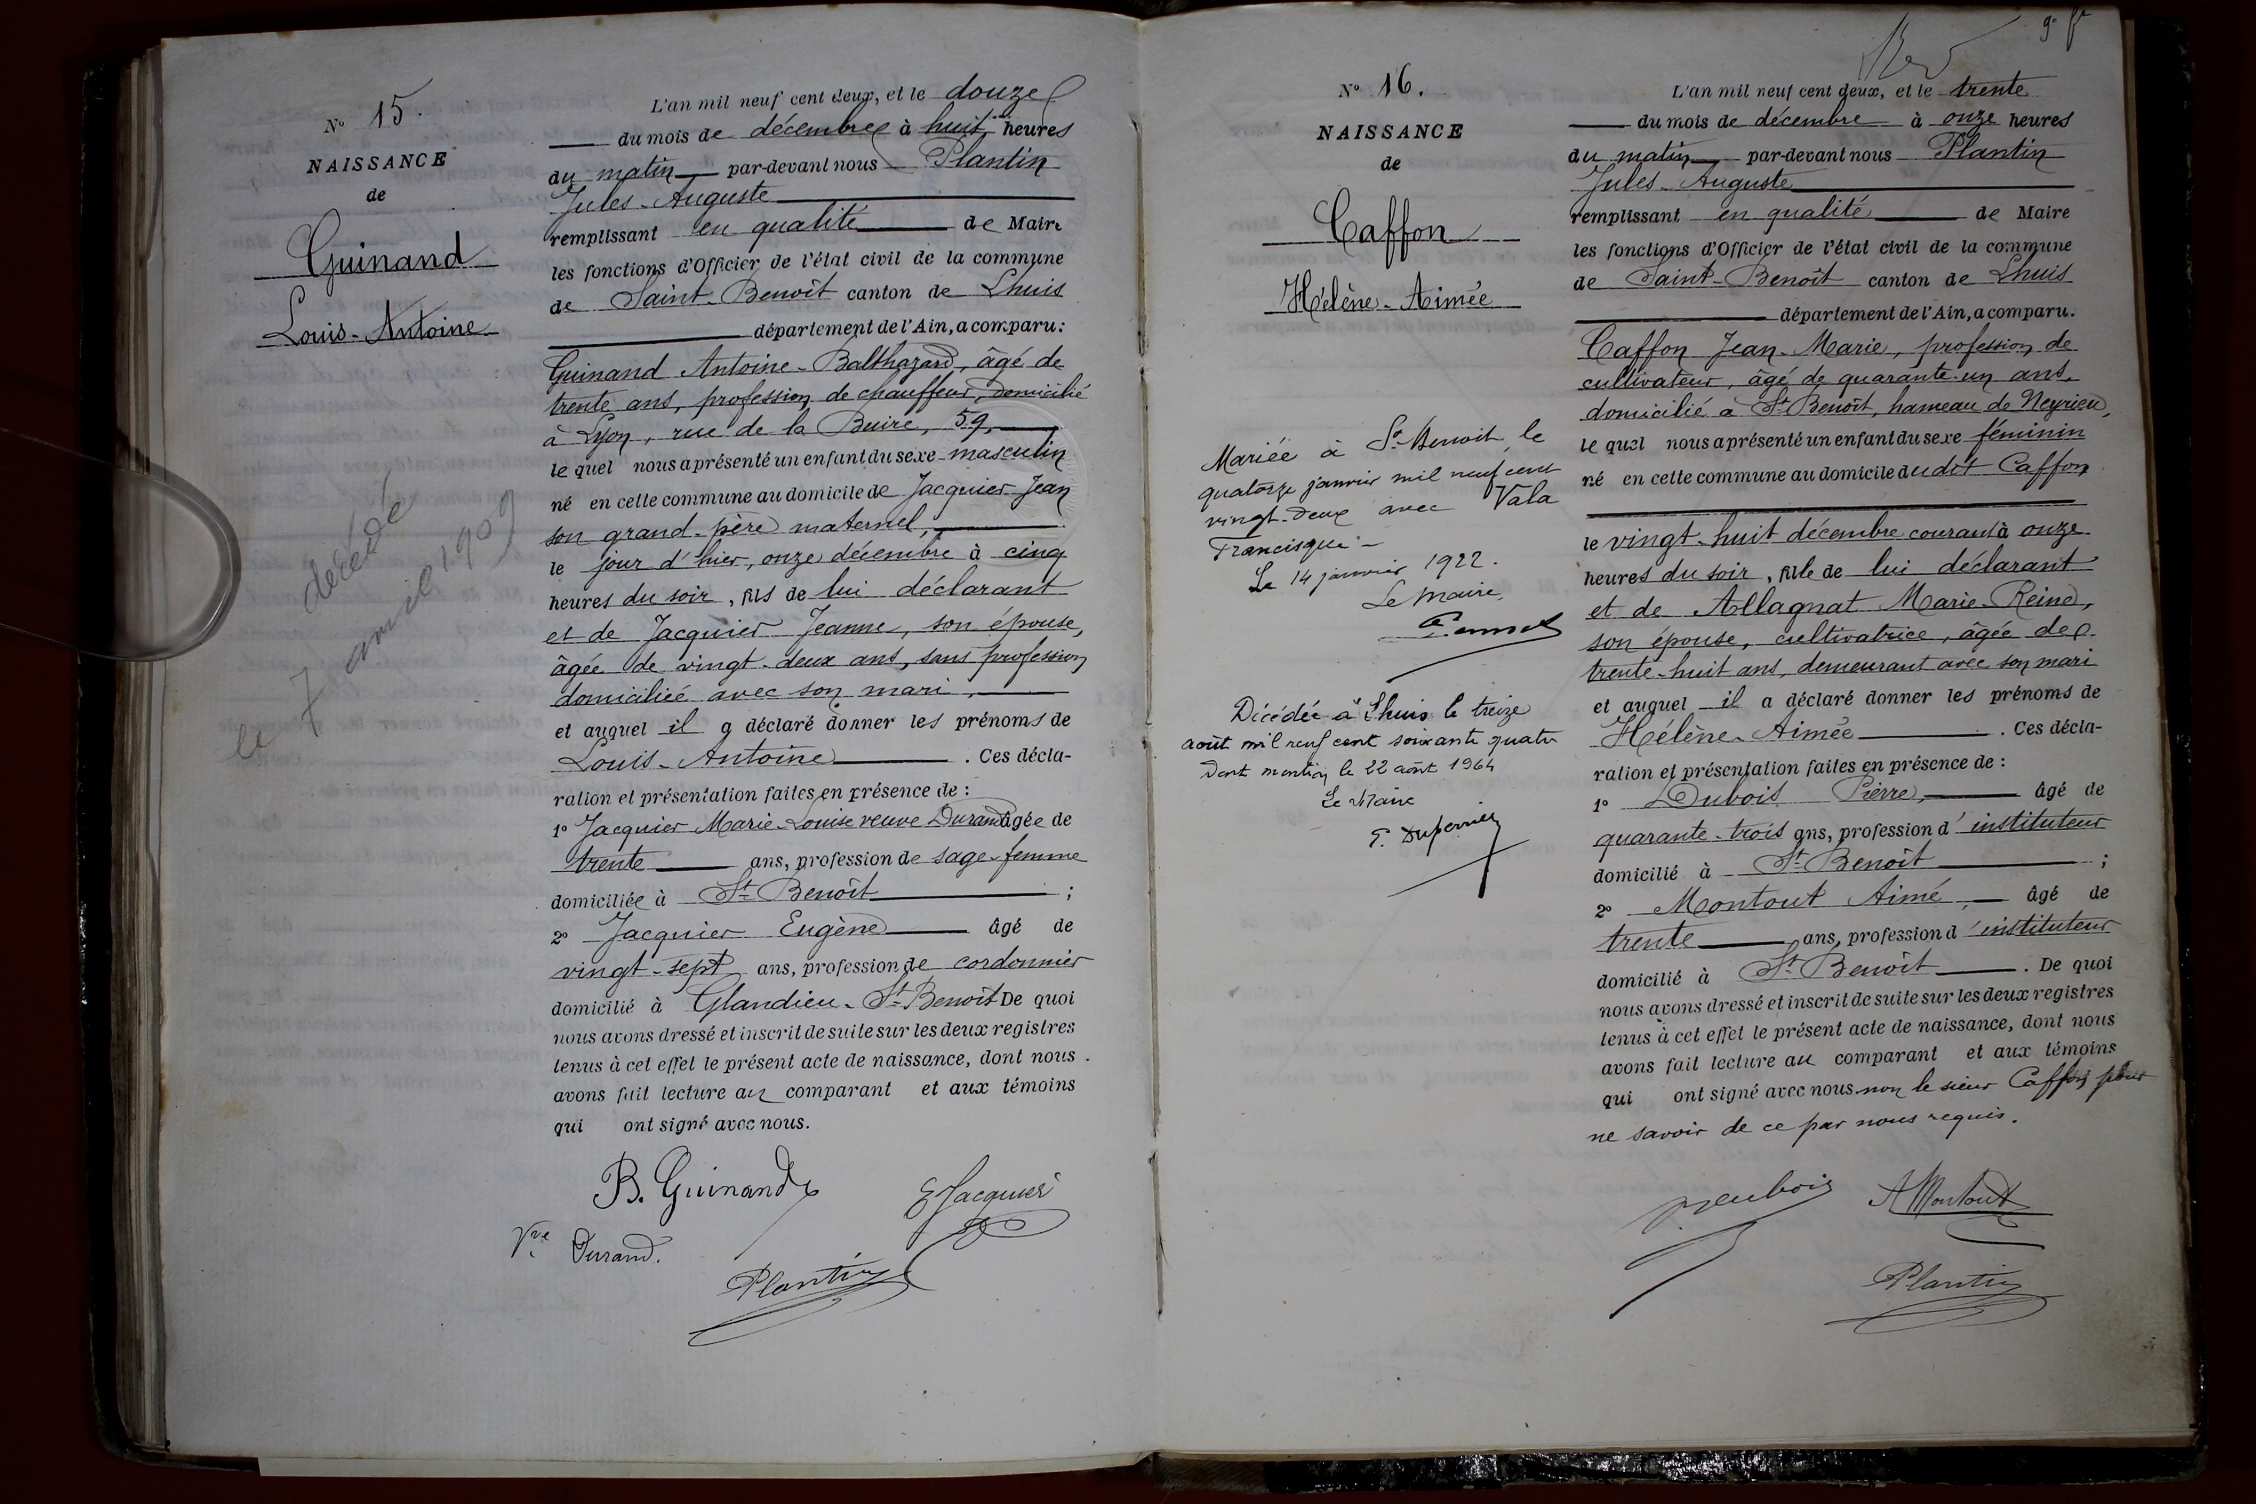 N° 15.
NAISSANCE
de
Guinand
Louis-Antoine
décédé
le 7 avril 1909
L'an mil neuf cent deux, et le douze
du mois de décembre à huit heures
du matin par-devant nous Plantin
Jules-Auguste
remplissant en qualité de Maire
les fonctions d'Officier de l'état civil de la commune
de Saint-Benoît canton de Lhuis
département de l'Ain, a comparu:
Guinand Antoine-Balthazard, âgé de
trente ans, profession de chauffeur, domicilié
à Lyon, rue de la Buire, 59,
lequel nous a présenté un enfant du sexe masculin
né en cette commune au domicile de Jacquier Jean
son grand-père maternel,
le jour d'hier, onze décembre à cinq
heures du soir, fils de lui déclarant
et de Jacquier Jeanne, son épouse,
âgée de vingt-deux ans, sans profession
domiciliée avec son mari,
et auquel il a déclaré donner les prénoms de
Louis-Antoine. Ces décla-
ration et présentation faites en présence de :
1° Jacquier Marie-Louise veuve Durand âgée de
trente ans, profession de sage-femme
domiciliée à St Benoît ;
2° Jacquier Eugène âgé de
vingt-sept ans, profession de cordonnier
domicilié à Glandieu-St Benoît De quoi
nous avons dressé et inscrit de suite sur les deux registres
tenus à cet effet le présent acte de naissance, dont nous
avons fait lecture au comparant et aux témoins
qui ont signé avec nous.
B. Guinand
E Jacquier
Vve Durand.
Plantin
9e ft
N° 16.
NAISSANCE
de
Caffon
Hélène-Aimée
Mariée à St-Benoit, le
quatorze janvier mil neuf cent
vingt-deux avec Vala
Francisque-
Le 14 janvier 1922.
Le maire,
Décédée à Lhuis le treize
août mil neuf cent soixante quatre
Dont mention le 22 août 1964
Le Maire
P. Duperrier
L'an mil neuf cent deux, et le trente
du mois de décembre à onze heures
du matin par-devant nous Plantin
Jules-Auguste
remplissant en qualité de Maire
les fonctions d'Officier de l'état civil de la commune
de Saint-Benoît canton de Lhuis
département de l'Ain, a comparu.
Caffon Jean-Marie, profession de
cultivateur, âgé de quarante-un ans,
domicilié à St Benoît, hameau de Neyrieu,
lequel nous a présenté un enfant du sexe féminin
né en cette commune au domicile dudit Caffon
le vingt-huit décembre courant à onze
heures du soir, fille de lui déclarant
et de Allagnat Marie-Reine,
son épouse, cultivatrice, âgée de
trente-huit ans, demeurant avec son mari
et auquel il a déclaré donner les prénoms de
Hélène-Aimée. Ces décla-
ration et présentation faites en présence de :
1° Dubois Pierre, âgé de
quarante-trois ans, profession d'instituteur
domicilié à St Benoît ;
2° Montout Aimé, âgé de
trente ans, profession d'instituteur
domicilié à St Benoît. De quoi
nous avons dressé et inscrit de suite sur les deux registres
tenus à cet effet le présent acte de naissance, dont nous
avons fait lecture au comparant et aux témoins
qui ont signé avec nous non le sieur Caffon pour
ne savoir de ce par nous requis.
P. Dubois
A Montout
Plantin